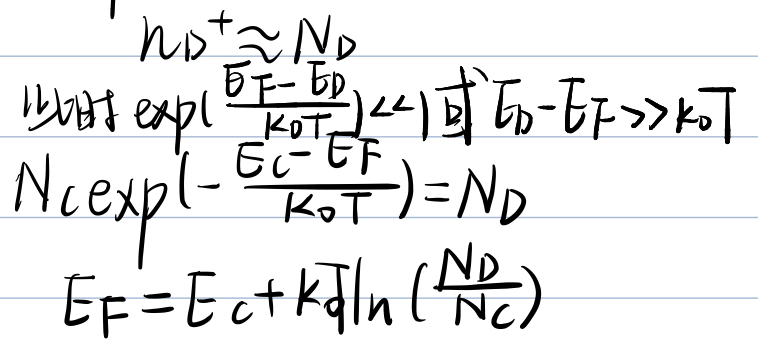 n_D⁺ ≈ N_D
此时 exp(\frac{E_F - E_D}{k_0T}) << 1 或 E_D - E_F >> k_0T
N_c exp(-\frac{E_c - E_F}{k_0T}) = N_D
E_F = E_c + k_0T ln(\frac{N_D}{N_C})